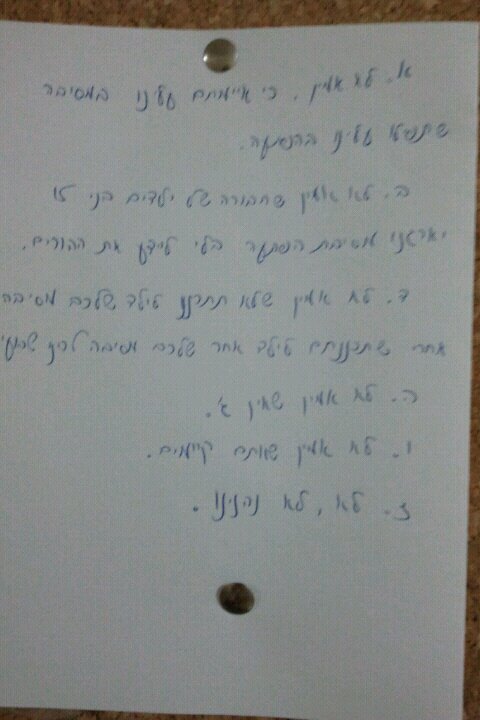 א. לא אמין. כי איימתם עלינו במסיבה
שתעשו עלינו בהפתעה.
ב. לא אמין שחבורה של ילדים בני 10
יארגנו מסיבת הפתעה בלי לידע את ההורים.
ד. לא אמין שלא תתכננו לילד שלכם מסיבה
אחרי שתכננתם לילד אחר שלכם מסיבה
ה. לא אמין שאין ג'.
ו. לא אמין שאתם קיימים.
ז. לא, לא נהנינו.